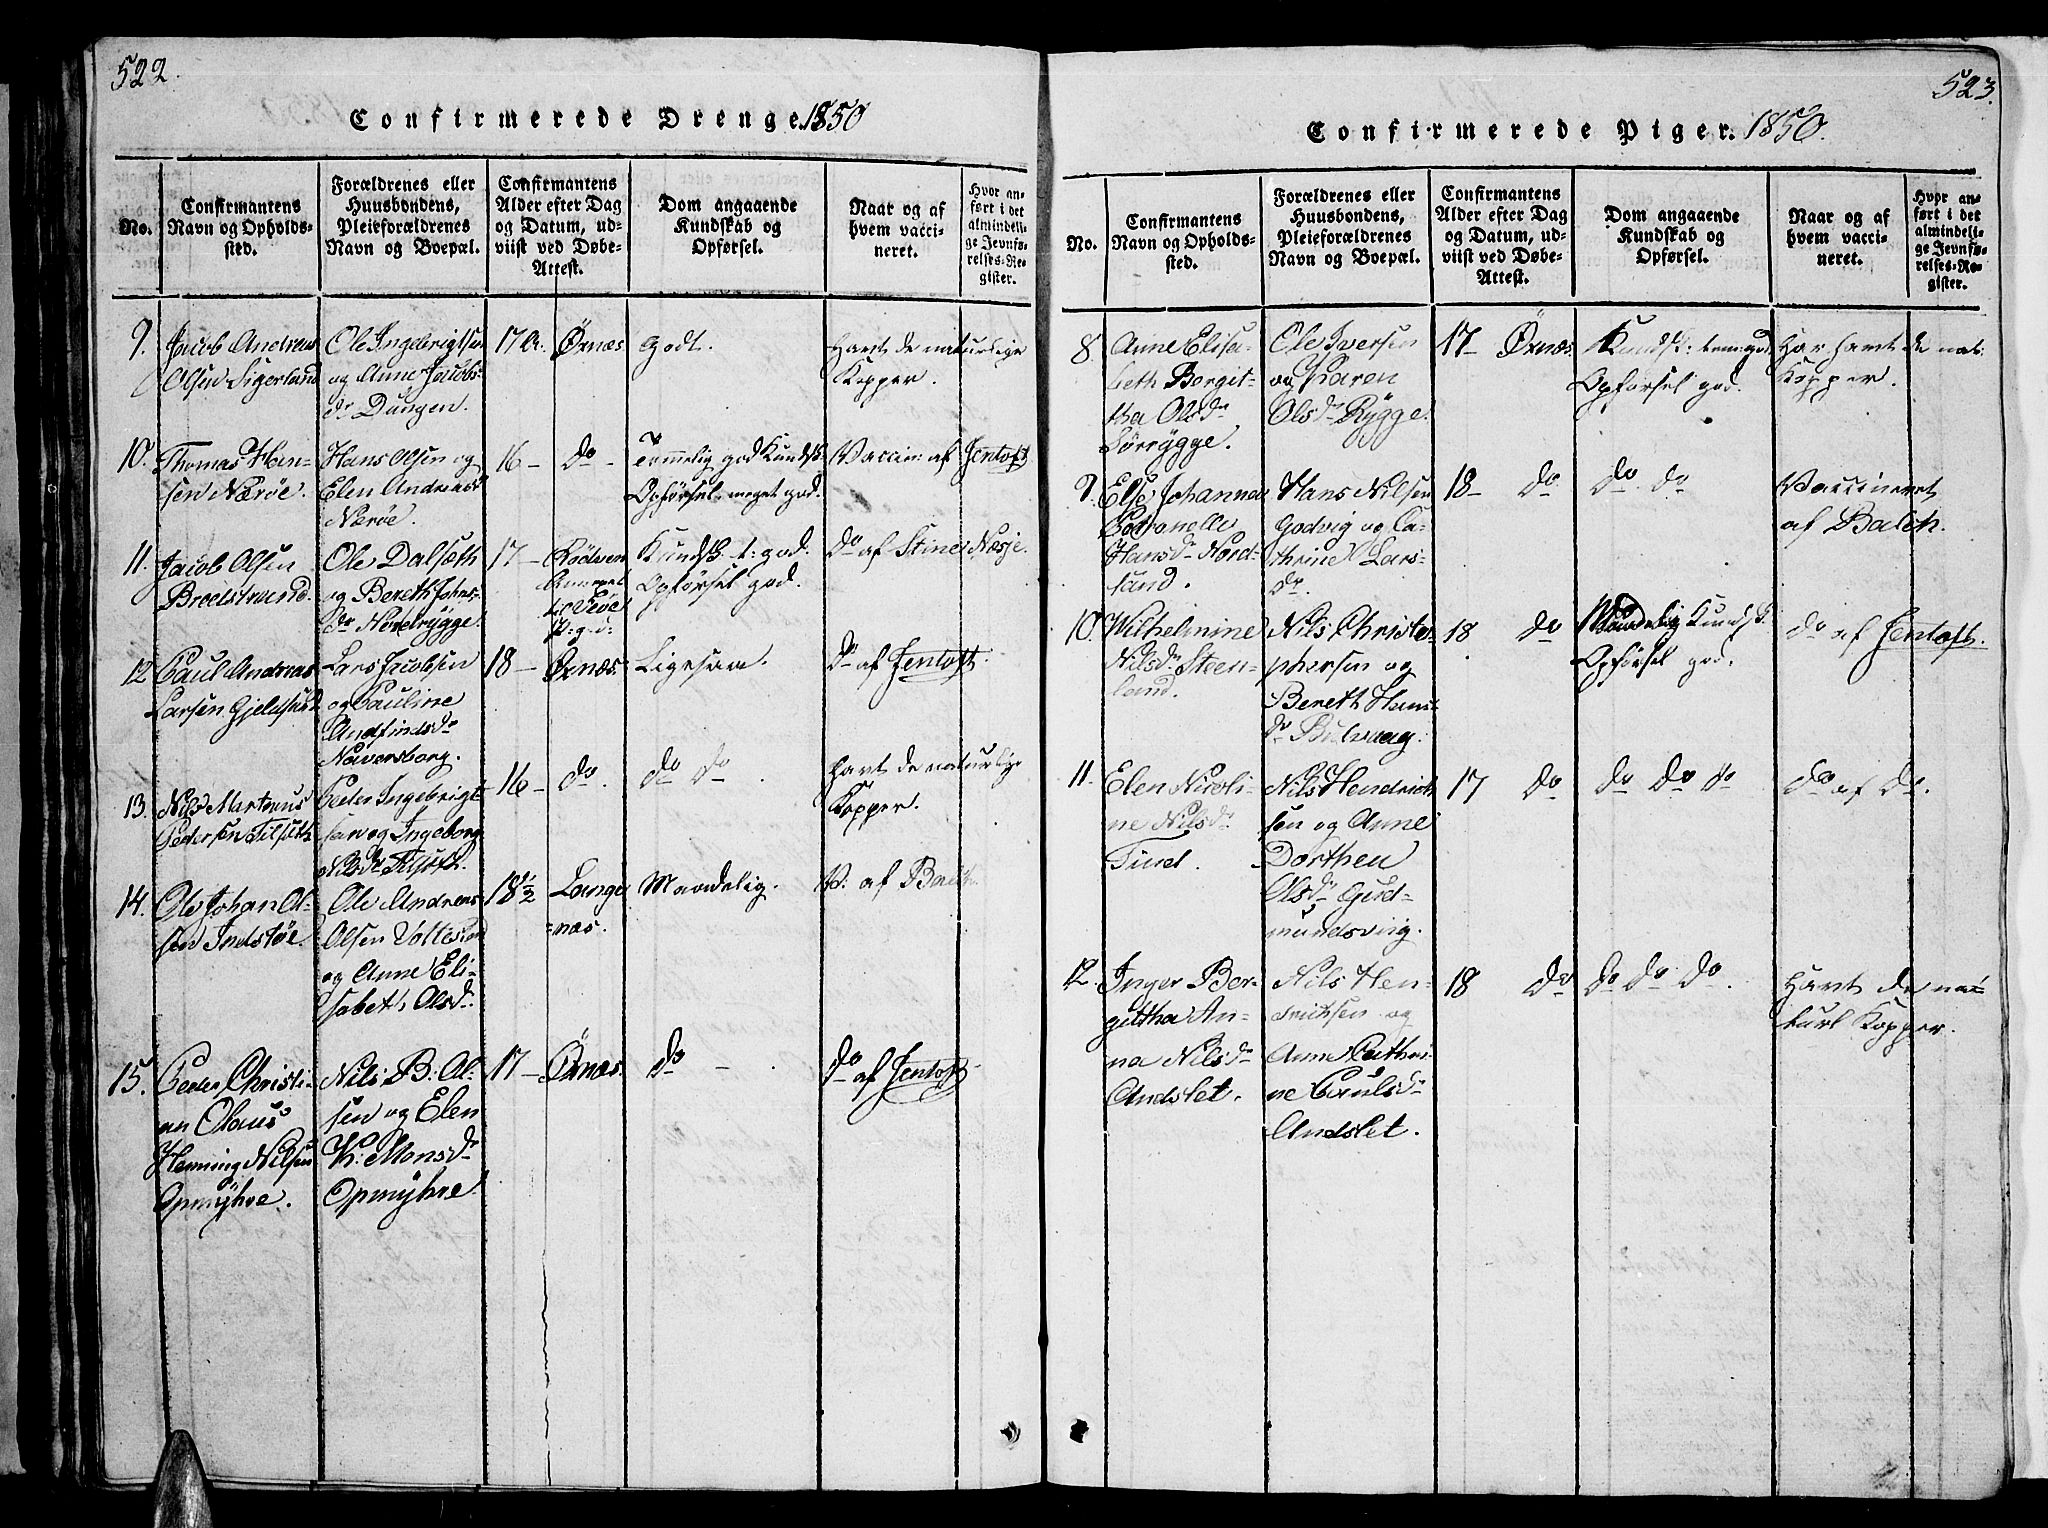 522.
Confirmerede Drenge 1850
No.
Confirmantens
Navn og Opholds-
sted.
Forældrenes eller
Huusbondens,
Pleieforældrenes
Navn og Boepæl.
Confirmantens
Alder efter Dag
og Datum, ud-
viist ved Døbe-
Attest.
Dom angaaende
Kundskab og
Opførsel.
Naar og af
hvem vacci-
neret.
Hvor an-
ført i det
almindeli-
ge Jevnfø-
relses-Re-
gister.
9.
Jacob Andreas
Olsen Sigerland
Ole Ingebrigtsen
og Anne Jacobs-
dr Dungen.
17 A.
Örnæs
Godt.
Havt de naturlige
Kopper.
10.
Thomas Han-
sen Næröe.
Hans Olsen og
Elen Andreasd
Neröe.
16 -
do -
Temmelig god Kundsk.
Opförsel meget god.
Vaccin: af Jentoft
11.
Jacob Olsen
Bredstrand.
Ole Dalseth
og Bereth Johns-
dr Nordrygge.
17 -
Rödven
Annexet
til Veöe
P: g: d:
Kundsk. t: god.
Opförsel god.
Do af Stine Næsje.
12
Paul Andreas
Larsen Gjeldsund
Lars Jacobsen
og Pauline
Andfindsdr
Naversborg.
18 -
Örnæs.
Ligesaa.
Do af Jentoft.
13.
Nils Martinus
Pedersen Tilseth
Peder Ingebrigt-
sen og Ingeborg
Nilsdr Tilseth.
16 -
do.
do do.
Havt de naturlige
Kopper.
14.
Ole Johan Ol-
sen Indstöe.
Ole Andreas
Olsen Voltesund
og Anne Eli-
sabeth Olsdr.
18 1/2
Lange
=næs.
Maadelig.
V. af Balch.
15.
Peder Christi-
an Olaus
Henning Nilsen
Opmyhre.
Nils B. Ol-
sen og Elen
K: Monsdr
Opmyhre.
17 -
Örnæs.
do -
Do af Jentoft -
523.
Confirmerede Piger. 1850.
No.
Confirmantens
Navn og Opholds-
sted.
Forældrenes eller
Huusbondens,
Pleieforældrenes
Navn og Boepæl.
Confirmantens
Alder efter Dag
og Datum, ud-
viist ved Døbe-
Attest.
Dom angaaende
Kundskab og
Opførsel.
Naar og af
hvem vacci-
neret.
Hvor an-
ført i det
almindeli-
ge Jevnfø-
relses-Re-
gister.
8
Anne Elisa-
beth Bergit-
tha Olsdr
Sörrygge.
Ole Iversen
og Karen
Olsdr Rygge.
17 -
Örnæs.
Kundsk: tem: god
Opförsel god.
Har havt de nat:
Kopper.
9.
Else Johanna
Petronelle
Hansdr Nord-
sand.
Hans Nilsen
Godvig og Ca-
thrine Lars-
dr.
18 -
do
do do
Vaccineret
af Balch.
10.
Wilhelmine
Nilsdr Steen-
land.
Nils Christo-
phersen og
Bereth Hans-
dr Bulvaag.
18
do
Maadelig Kundsk.
Opförsel god.
do af Jentoft.
11.
Elen Nicoli-
ne Nilsdr
Tind.
Nils Hendrich
sen og Anne
Dorthea
Olsdr Gud-
mundsvig.
17
do
do do do
do af do.
12.
Inger Ber-
gittha An-
na Nilsdr
Andslet.
Nils Hen-
drichsen og
Anne Cathri-
ne Paulsdr
Andslet.
18
do
do do do.
Havt de na-
turl Kopper.